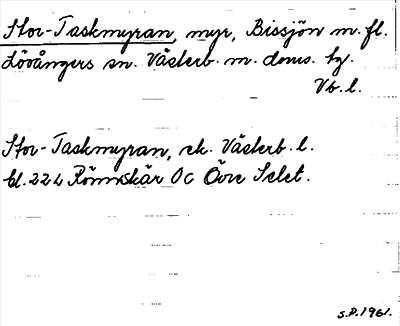 Stor-Taskmyran, myr, Bissjön m. fl.
Lövångers sn. Västerb. m. doms. bg.
Vb. l.
Stor-Taskmyran, ek. Västerb. l.
bl. 22 L Rönnskär Oc Övre Selet.
S.D. 1961.